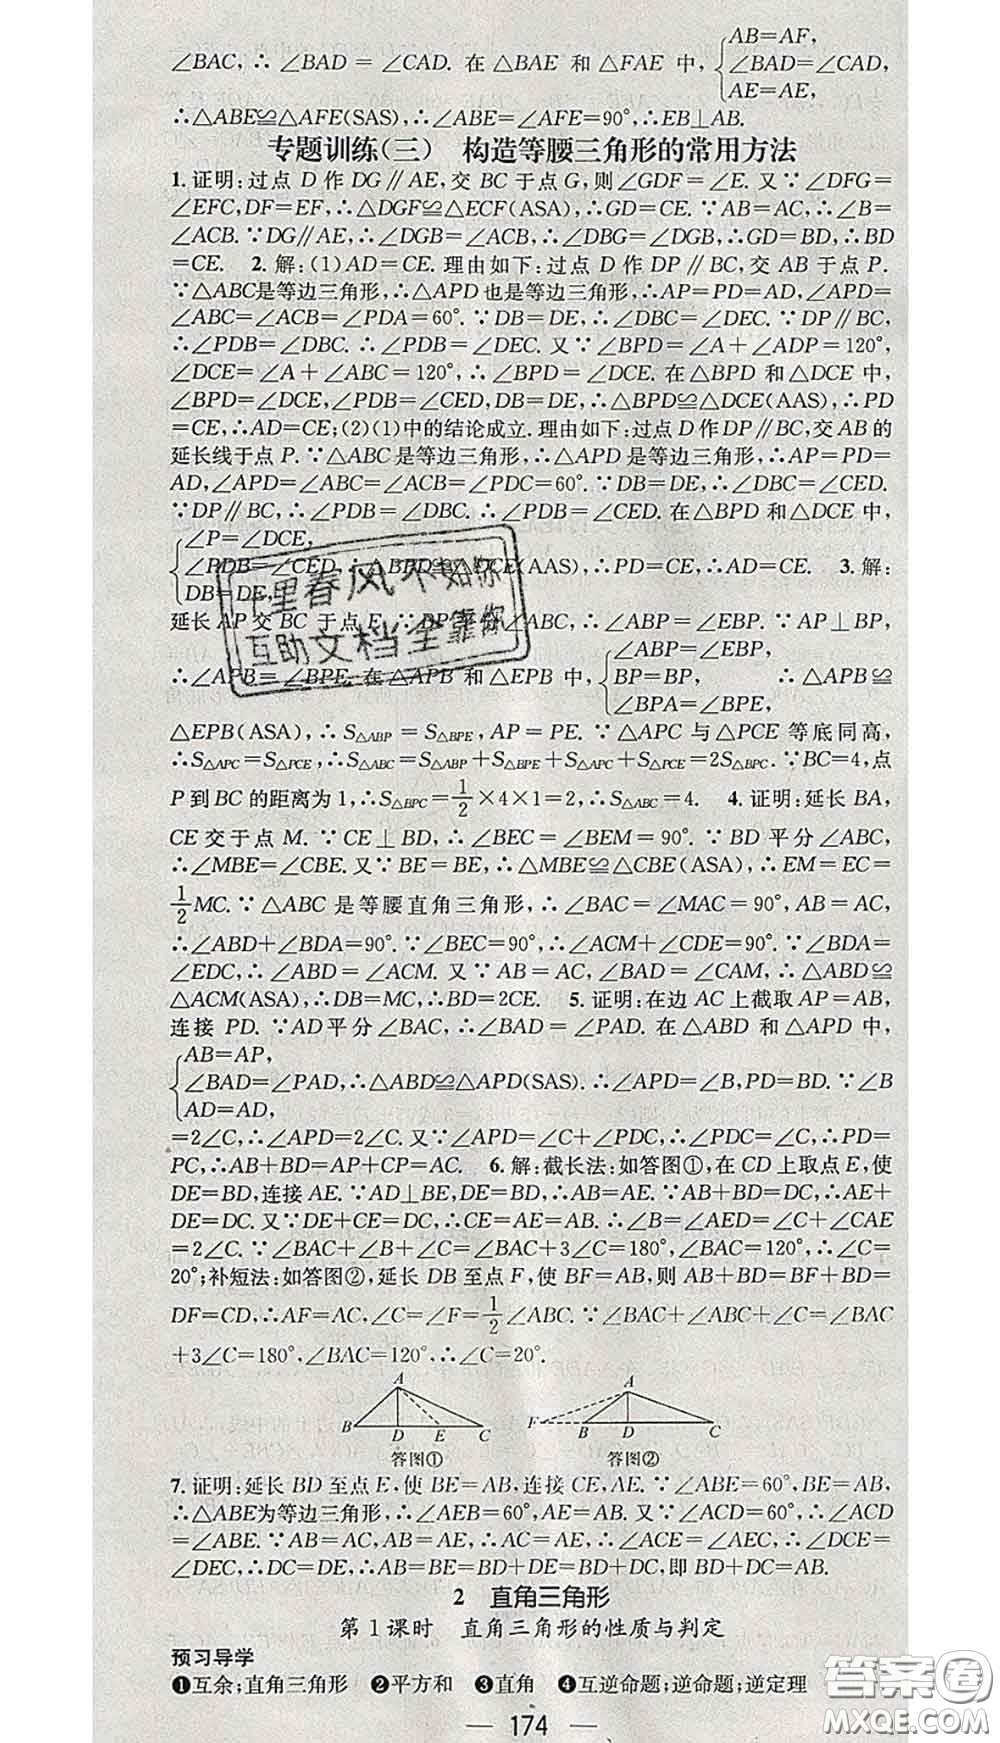 AB=AF,
∠BAC,∴∠BAD=∠CAD. 在△BAE 和△FAE 中, ∠BAD=∠CAD,
AE=AE,
∴△ABE≌△AFE(SAS),∴∠ABE=∠AFE=90°,∴EB⊥AB.
专题训练(三) 构造等腰三角形的常用方法
1.证明:过点 D 作 DG∥AE,交 BC 于点 G,则∠GDF=∠E. 又∵∠DFG=
∠EFC,DF=EF,∴△DGF≌△ECF(ASA),∴GD=CE.∵AB=AC,∴∠B=
∠ACB.∵DG∥AE,∴∠DGB=∠ACB,∴∠DBG=∠DGB,∴GD=BD,∴BD
=CE. 2.解:(1)AD=CE.理由如下:过点 D 作 DP∥BC,交 AB 于点 P.
∵△ABC是等边三角形,∴△APD也是等边三角形,∴AP=PD=AD,∠APD=
∠ABC=∠ACB=∠PDA=60°.∵DB=DE,∴∠DBC=∠DEC.∵DP∥BC,
∴∠PDB=∠DBC.∴∠PDB=∠DEC.又∵∠BPD=∠A+∠ADP=120°,
∠DCE=∠A+∠ABC=120°,∴∠BPD=∠DCE.在△BPD 和△DCE 中,
∠BPD=∠DCE,∠PDB=∠CED,DB=DE,∴△BPD≌△DCE(AAS),∴PD
=CE,∴AD=CE;(2)(1)中的结论成立.理由如下:过点 D 作 DP∥BC,交 AB 的
延长线于点 P.∵△ABC 是等边三角形,∴△APD 是等边三角形,∴AP=PD=
AD,∠APD=∠ABC=∠ACB=∠PDC=60°.∵DB=DE,∴∠DBC=∠CED.
∵DP∥BC,∴∠PDB=∠DBC.∴∠PDB=∠CED.在△BPD 和△DCE 中,
∠P=∠DCE,
∠PDB=∠CED,∴△BPD≌△DCE(AAS),∴PD=CE,∴AD=CE. 3.解:
DB=DE,
千里春风不如你
互助文档全靠你
延长 AP 交 BC 于点 E.∵BP 平分∠ABC,∴∠ABP=∠EBP.∵AP⊥BP,
∠ABP=∠EBP,
∴∠APB=∠BPE.在△APB 和△EPB 中, BP=BP, ∴△APB≌
∠BPA=∠BPE,
△EPB(ASA),∴S△ABP=S△BPE,AP=PE.∵△APC 与△PCE 等底同高,
∴S△APC=S△PCE,∴S△ABC=S△ABP+S△BPE+S△APC+S△PCE=2S△BPC.∵BC=4,点
P 到 BC 的距离为 1,∴S△BPC=1/2×4×1=2,∴S△ABC=4. 4.证明:延长 BA,
CE 交于点 M.∵CE⊥BD,∴∠BEC=∠BEM=90°.∵BD 平分∠ABC,
∴∠MBE=∠CBE.又∵BE=BE,∴△MBE≌△CBE(ASA),∴EM=EC=
1/2MC.∵△ABC 是等腰直角三角形,∴∠BAC=∠MAC=90°,AB=AC,
∴∠ABD+∠BDA=90°.∵∠BEC=90°,∴∠ACM+∠CDE=90°.∵∠BDA=
∠EDC,∴∠ABD=∠ACM. 又∵AB=AC,∠BAD=∠CAM,∴△ABD≌
△ACM(ASA),∴DB=MC,∴BD=2CE. 5.证明:在边 AC 上截取 AP=AB,
连接 PD.∵AD平分∠BAC,∴∠BAD=∠PAD. 在△ABD 和△APD 中,
AB=AP,
∠BAD=∠PAD,∴△ABD≌△APD(SAS).∴∠APD=∠B,PD=BD.∵∠B
AD=AD,
=2∠C,∴∠APD=2∠C.又∵∠APD=∠C+∠PDC,∴∠PDC=∠C,∴PD=
PC,∴AB+BD=AP+CP=AC. 6.解:截长法:如答图①,在 CD 上取点 E,使
DE=BD,连接 AE.∵AD⊥BE,DE=BD,∴AB=AE.∵AB+BD=DC,∴AE+
DE=DC.又∵DE+CE=DC,∴CE=AE=AB.∴∠B=∠AED=∠C+∠CAE
=2∠C.∵∠BAC+∠B+∠C=∠BAC+3∠C=180°,∠BAC=120°,∴∠C=
20°;补短法:如答图②,延长 DB 至点 F,使 BF=AB,则 AB+BD=BF+BD=
DF=CD,∴AF=AC,∠C=∠F=1/2∠ABC.∵∠BAC+∠ABC+∠C=∠BAC
+3∠C=180°,∠BAC=120°,∴∠C=20°.
A
B D E C
答图①
A
F B D C
答图②
7.证明:延长 BD 至点 E,使 BE=AB,连接 CE,AE.∵∠ABE=60°,BE=AB,
∴△ABE为等边三角形,∴∠AEB=60°,AE=AB.又∵∠ACD=60°,∴∠ACD
=∠ABE.∵AB=AC,AB=AE,∴AC=AE,∴∠ACE=∠AEC,∴∠DCE=
∠DEC,∴DC=DE,∴AB=BE=BD+DE=BD+DC,即 BD+DC=AB.
2 直角三角形
第 1 课时 直角三角形的性质与判定
预习导学
❶互余;直角三角形 ❷平方和 ❸直角 ❹互逆命题;逆命题;逆定理
— 174 —
答案圈
MXQE.COM